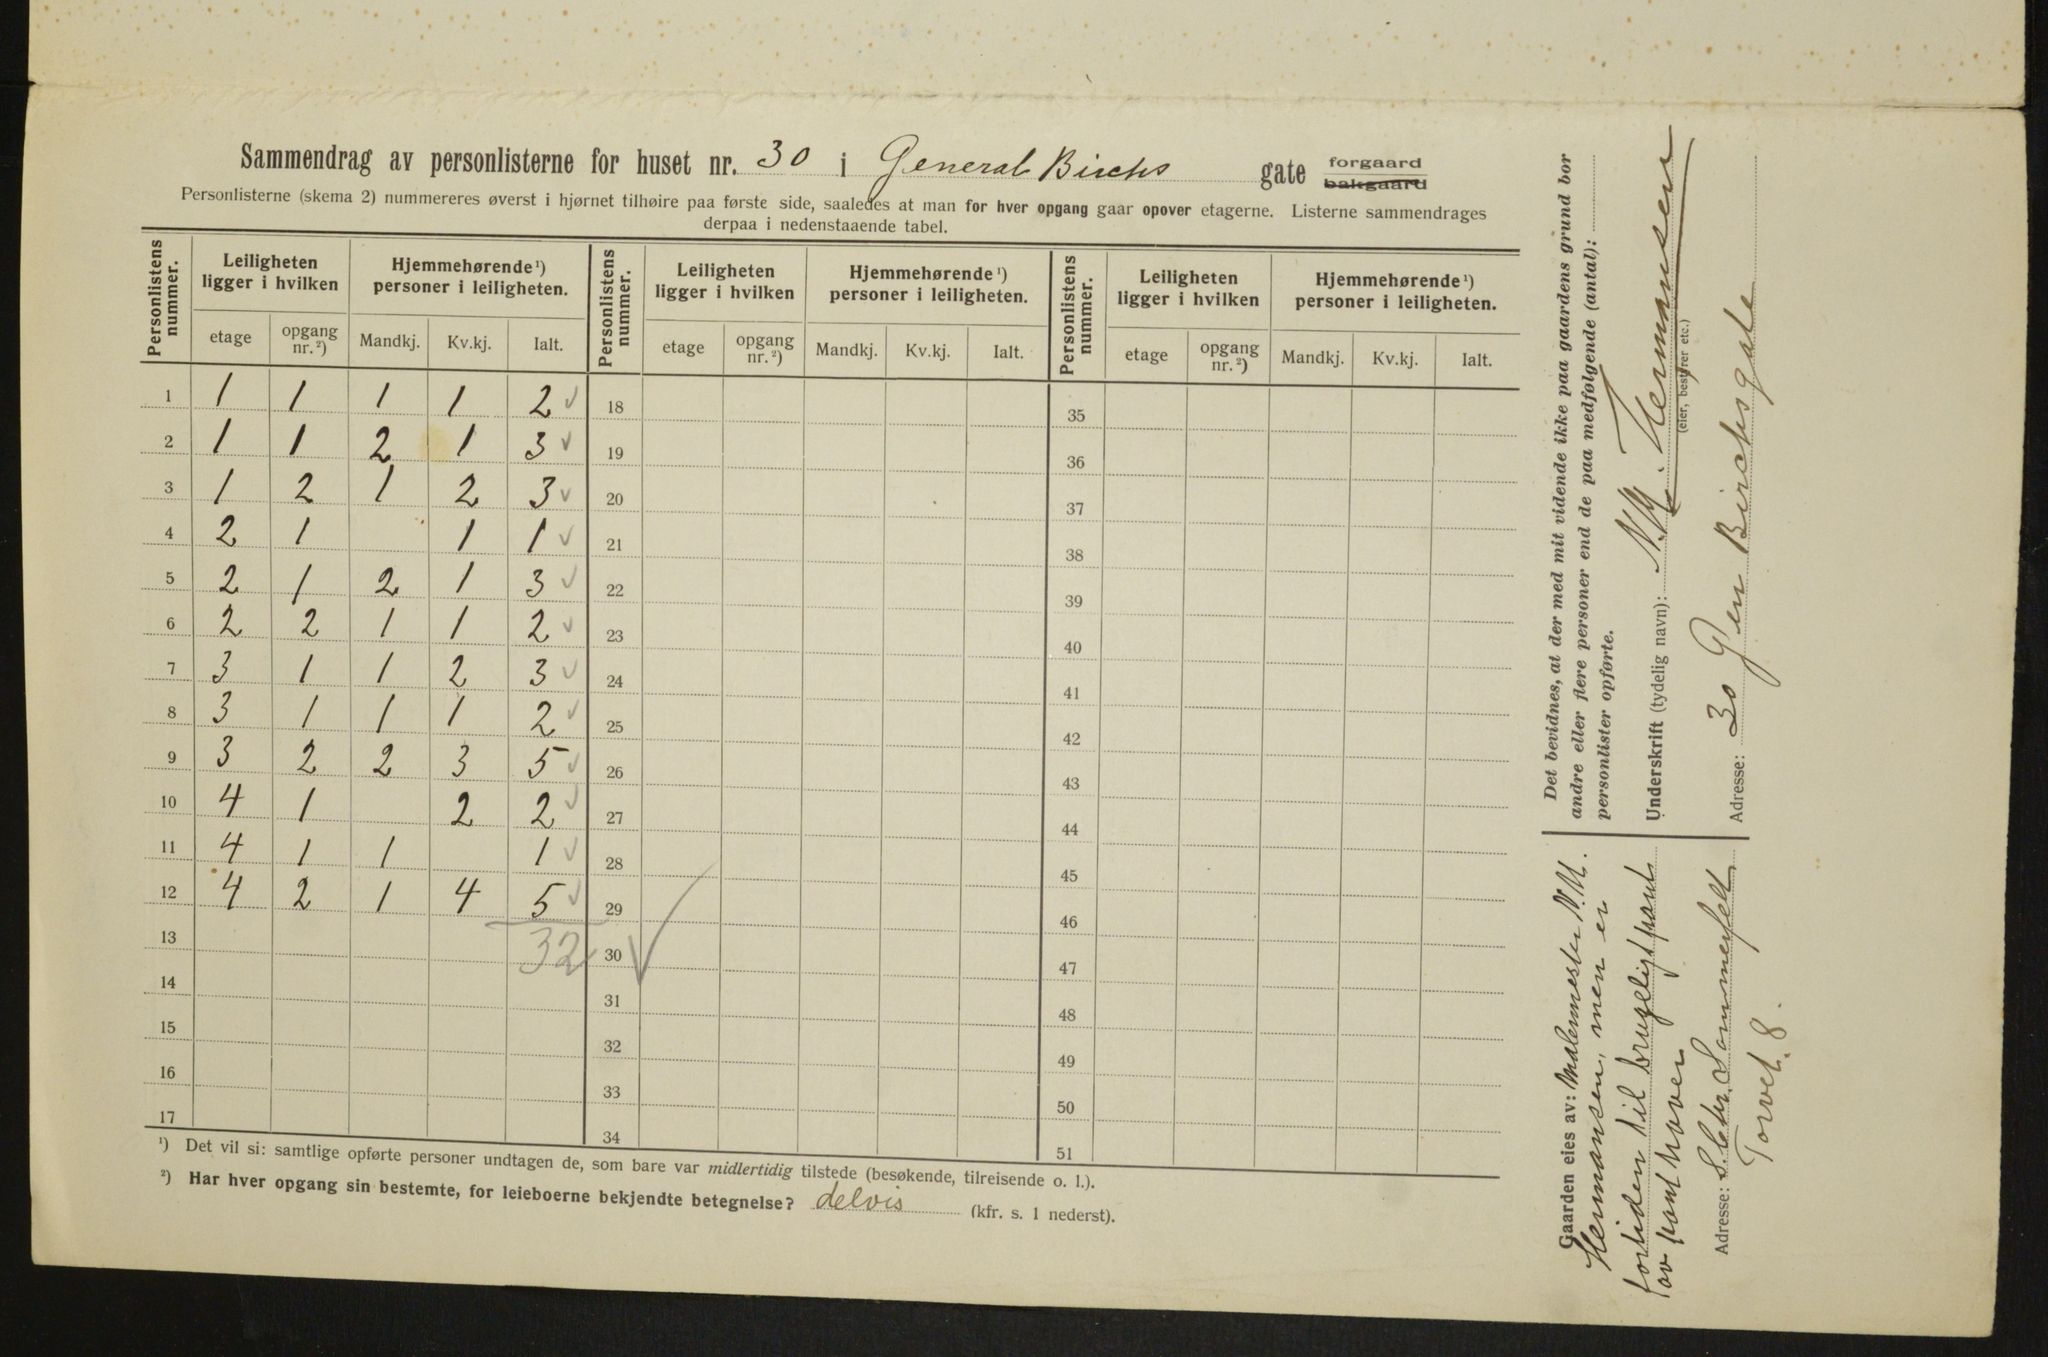 Sammendrag av personlisterne for huset nr. 30 i General Birchs gate forgaard bakgaard
Personlisterne (skema 2) nummereres øverst i hjørnet tilhøire paa første side, saaledes at man for hver opgang gaar opover etagerne. Listerne sammendrages
derpaa i nedenstaaende tabel.
Personlistens nummer. Leiligheten ligger i hvilken Hjemmehørende ¹) personer i leiligheten. Personlistens nummer. Leiligheten ligger i hvilken Hjemmehørende ¹) personer i leiligheten. Personlistens nummer. Leiligheten ligger i hvilken Hjemmehørende ¹) personer i leiligheten.
etage opgang nr. ²) Mandkj. Kv.kj. Ialt. etage opgang nr. ²) Mandkj. Kv.kj. Ialt. etage opgang nr. ²) Mandkj. Kv.kj. Ialt.
1 1 1 1 1 2 ✓ 18 35
2 1 1 2 1 3 ✓ 19 36
3 1 2 1 2 3 ✓ 20 37
4 2 1 1 1 ✓ 21 38
5 2 1 2 1 3 ✓ 22 39
6 2 2 1 1 2 ✓ 23 40
7 3 1 1 2 3 ✓ 24 41
8 3 1 1 1 2 ✓ 25 42
9 3 2 2 3 5 ✓ 26 43
10 4 1 2 2 ✓ 27 44
11 4 1 1 1 ✓ 28 45
12 4 2 1 4 5 ✓ 29 46
13 32 30 ✓ 47
14 31 48
15 32 49
16 33 50
17 34 51
¹) Det vil si: samtlige opførte personer undtagen de, som bare var midlertidig tilstede (besøkende, tilreisende o. l.).
²) Har hver opgang sin bestemte, for leieboerne bekjendte betegnelse? delvis (kfr. s. 1 nederst).
Det bevidnes, at der med mit vidende ikke paa gaardens grund bor
andre eller flere personer end de paa medfølgende (antal):
personlister opførte.
Underskrift (tydelig navn): N. M. Hermansen
(eier, bestyrer etc.)
Adresse: 30 Gen Birchsgate
Gaarden eies av: Malermester N.M.
Hermansen, men er
fortiden til brugeligt pant
av pant haver
Adresse: S. Chr. Sommerfelt
Torvet 8.